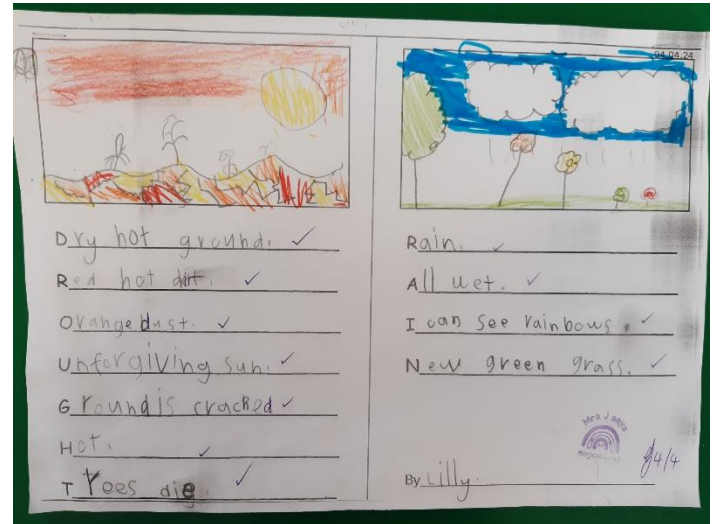 04.04.24
Dry hot ground.
Red hot dirt.
Orange dust.
Unforgiving sun.
Ground is cracked
Hot.
Trees die.
Rain.
All wet.
I can see rainbows.
New green grass.
Mrs J says
By Lilly.
4/4